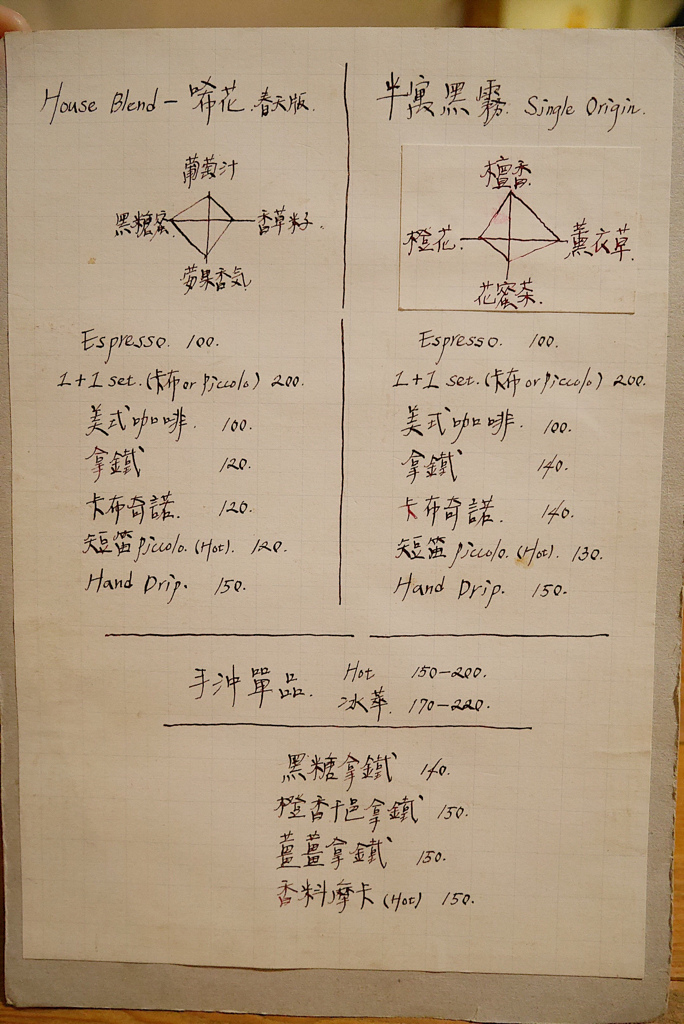 House Blend - 唏花 春天版.
葡萄汁
黑糖蜜
香草籽子.
蘋果香氣
Espresso. 100.
1+1 set. (卡布 or piccolo) 200.
美式咖啡. 100.
拿鐵 120.
卡布奇諾. 120.
短笛 piccolo. (Hot). 120.
Hand Drip. 150.
半寓黑霧. Single Origin.
檀香.
橙花.
薰衣草.
花蜜茶.
Espresso. 100.
1+1 set. (卡布 or piccolo) 200.
美式咖啡. 100.
拿鐵 140.
卡布奇諾. 140.
短笛 piccolo. (Hot). 130.
Hand Drip. 150.
手沖單品. Hot 150-200.
冰萃. 170-220.
黑糖拿鐵 140.
橙香十邑拿鐵 150.
薑薑拿鐵 150.
香料摩卡 (Hot) 150.